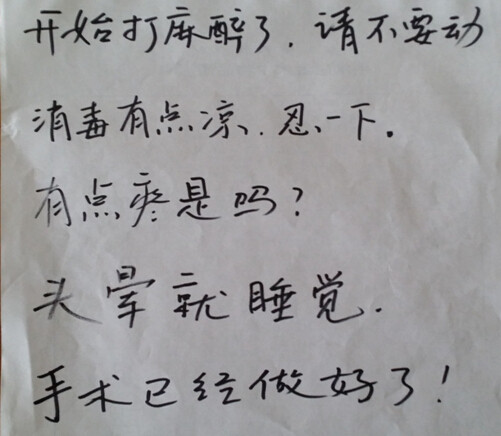 开始打麻醉了，请不要动
消毒有点凉，忍一下。
有点疼是吗？
头晕就睡觉．
手术已经做好了！